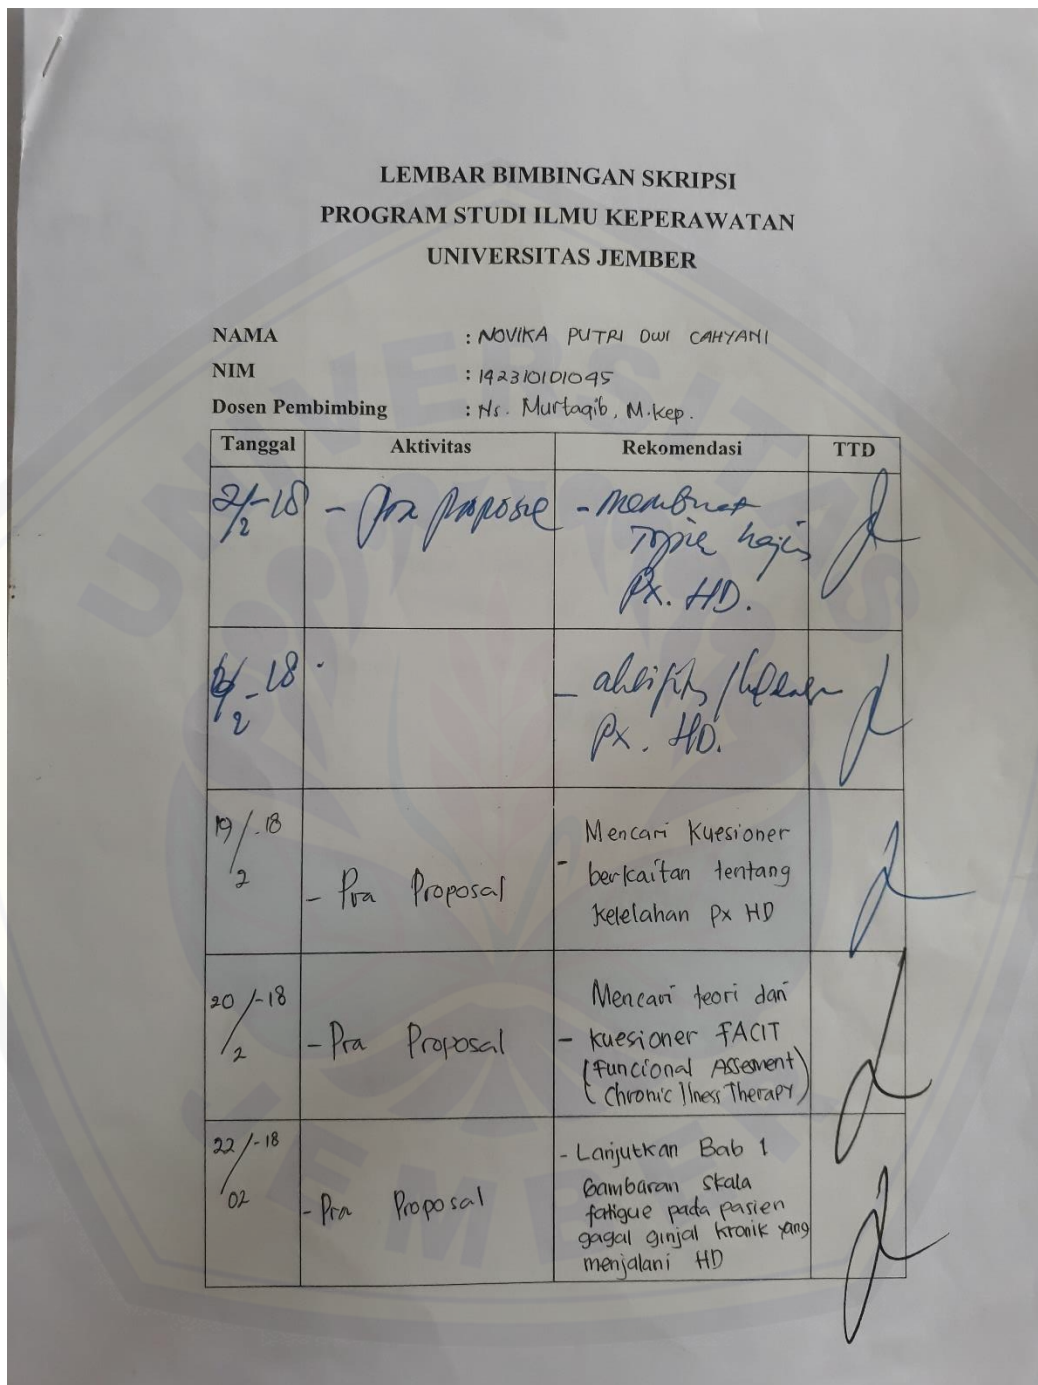 LEMBAR BIMBINGAN SKRIPSI
PROGRAM STUDI ILMU KEPERAWATAN
UNIVERSITAS JEMBER
NAMA : NOVIKA PUTRI DWI CAHYANI
NIM : 142310101095
Dosen Pembimbing : Ns. Murtaqib, M.Kep.
Tanggal Aktivitas Rekomendasi TTD
2/2-18 - Pra - membuat
Px. HD.
/2-18
Px. HD.
19/2-18 - Pra Proposal
Mencari Kuesioner
- berkaitan tentang
kelelahan Px HD
20/2-18 - Pra Proposal
Mencari teori dari
- kuesioner FACIT
(Funcional Assesment
Chronic Ilness Therapy)
22/02-18 - Pra Proposal
- Lanjutkan Bab 1
Gambaran skala
fatigue pada pasien
gagal ginjal kronik yang
menjalani HD
UNIVERSITAS
JEMBER